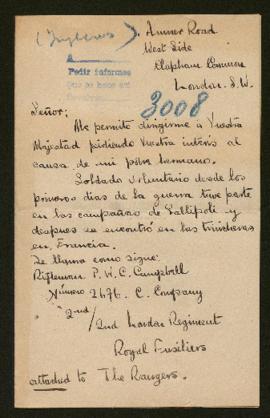 (Ingleses)
Amner Road.
West Side
Clapham Common
London. S.W.
A
Pedir informes
3008
Señor:
Me permite dirigirme á Vuestra
Majestad pidiendo Vuestra interés al
causa de mi pobre hermano.
Soldado voluntario desde los
primeros dias de la guerra tuvo parte
en las campañas de Gallipoli y
despues se encontró en las trincheras
en Francia.
Se llama como sigue:
Rifleman P. W. C. Campbell
Número 2676. C. Company
2nd/
2nd London Regiment
Royal Fusiliers
attached to The Rangers.